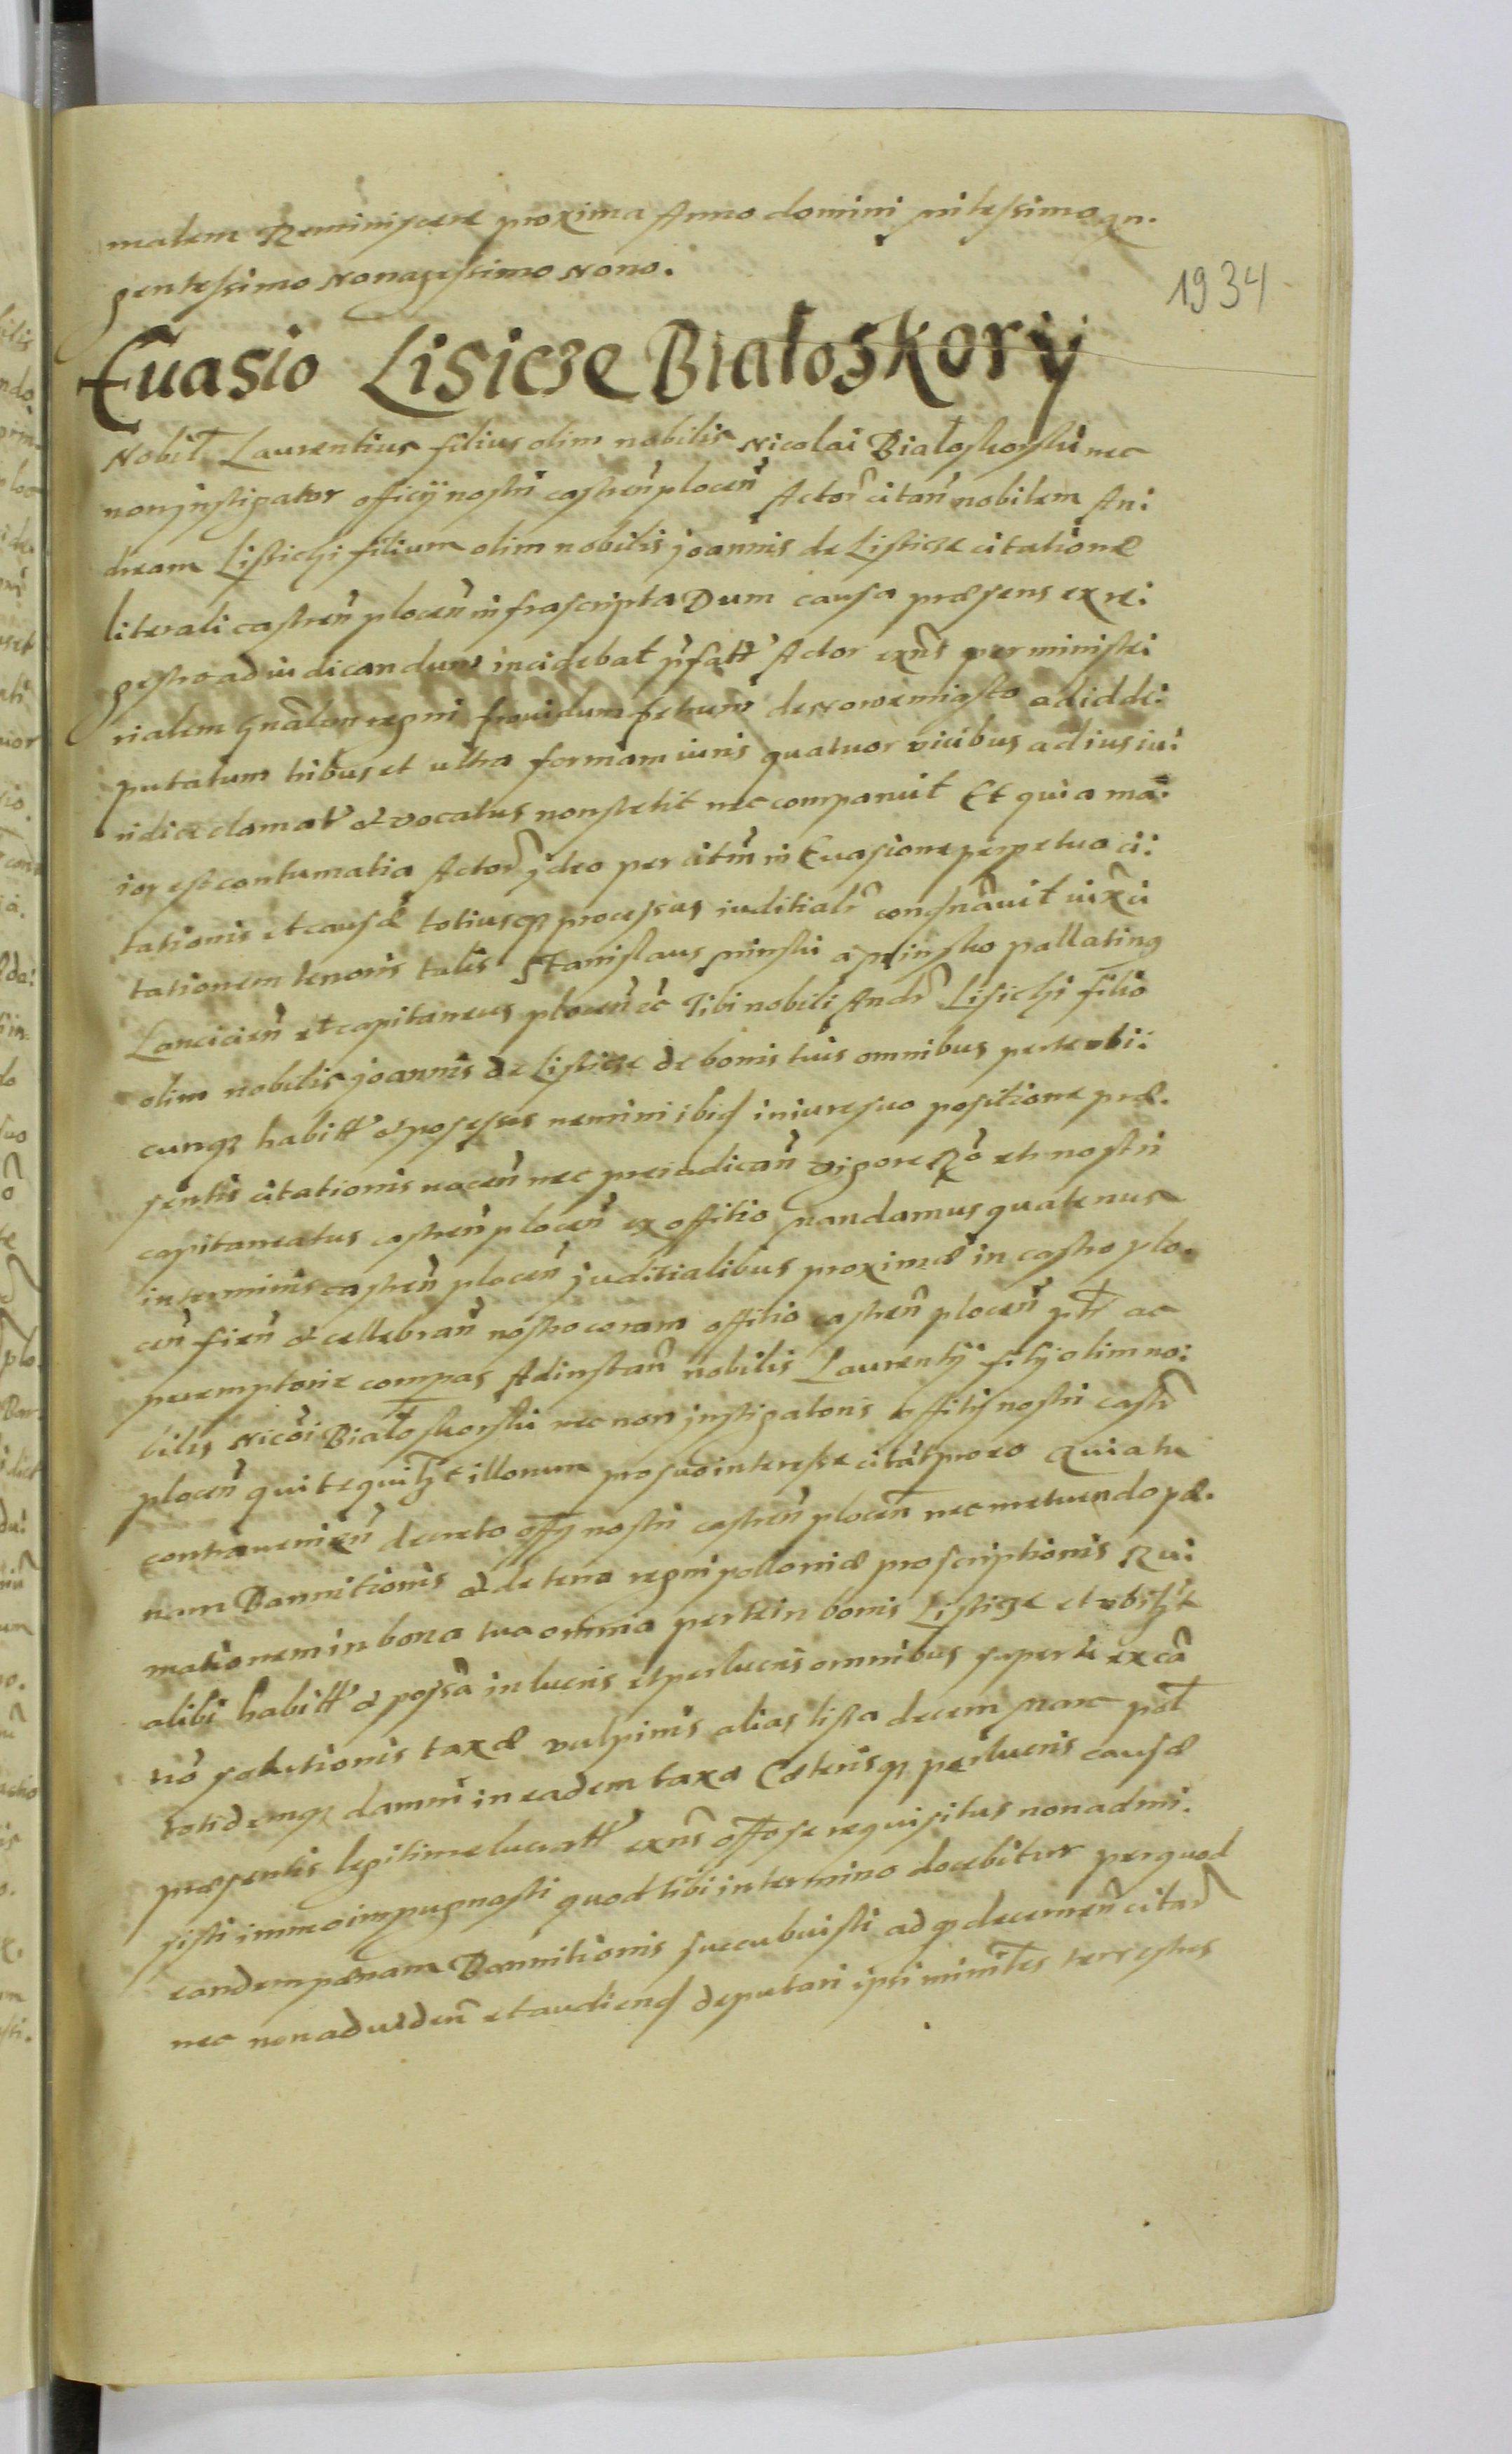 malem Reminiscere proxima Anno domini millessimo qn.
gentessimo Nonagessimo Nono.
1934
Euasio Lisicze Białoskory
Nobil Laurentius filius olim nobilis Nicolai Białoskorski nec
non jnstigator officij nostri castren plocen Actor citan nobilem An:
dream Lisiczki filium olim nobilis joannis de Lisicze citatione
literali castren plocen infrascripta Dum causa præsens ex re:
gestro ad iudicandum incidebat pfatt Actor exns per ministe:
rialem gnalem regni prouidum petrum de nowemiasto ad id de:
putatum tribus et ultra formam iuris quatuor vicibus ad ius iu:
ridice clamat et vocatus non stetit nec comparuit Et quia ma:
ior est contumatia Actor jdeo per citm in Euasione perpetua ci:
tationis et causæ totiusq processus iuditialr condnauit iuxa ci
tationem tenoris talis Stanislaus minski a minsko pallatinq
Lancicien et capitaneus plocen ec Tibi nobili Andr Lisiczki filio
olim nobilis joannis de Lisicze de bonis tuis omnibus per te vbi:
cunq habitt et possessis nemini ibid in iure suo positione præ.
sentis citationis nocen nec preiudican vigore Ro et nostri
capitaneatus castren plocen ex offitio mandamus quatenus
in terminis castren plocen juditialibus proxime in castro plo.
cen fien et cellebran nostro coram offitio castren plocen ptr ac
peremptorie compas Ad instan nobilis Laurentij filij olim no:
bilis Nicoi Białoskorski nec non jnstigatoris offitij nostri castr
plocen qui te quilzt illorum pro suo interesse citat pro eo Quia tu
contrauenien decreto offij nostri castren plocen nec metuendo pæ.
nam Bannitionis et de terra regni polloniæ proscriptionis Rui:
mationem in bona tua omnia per te in bonis Lisicze et vbilzt
alibi habitt et possa in lucris et per lucris omnibus super te ex ca
no solutionis taxæ vulpinis alias lissa decem marc pol
totidemq damni in eadem taxa Cæterisq per lucris causæ
præsentis legitime lucratt exns offose requisitus non admi.
sisti immo impugnasti quod tibi in termino docebitur per quod
eandem pænam Bannitionis succubuisti ad q decernen citar
nec non ad viden et audiend deputari ipsi minites terrestres